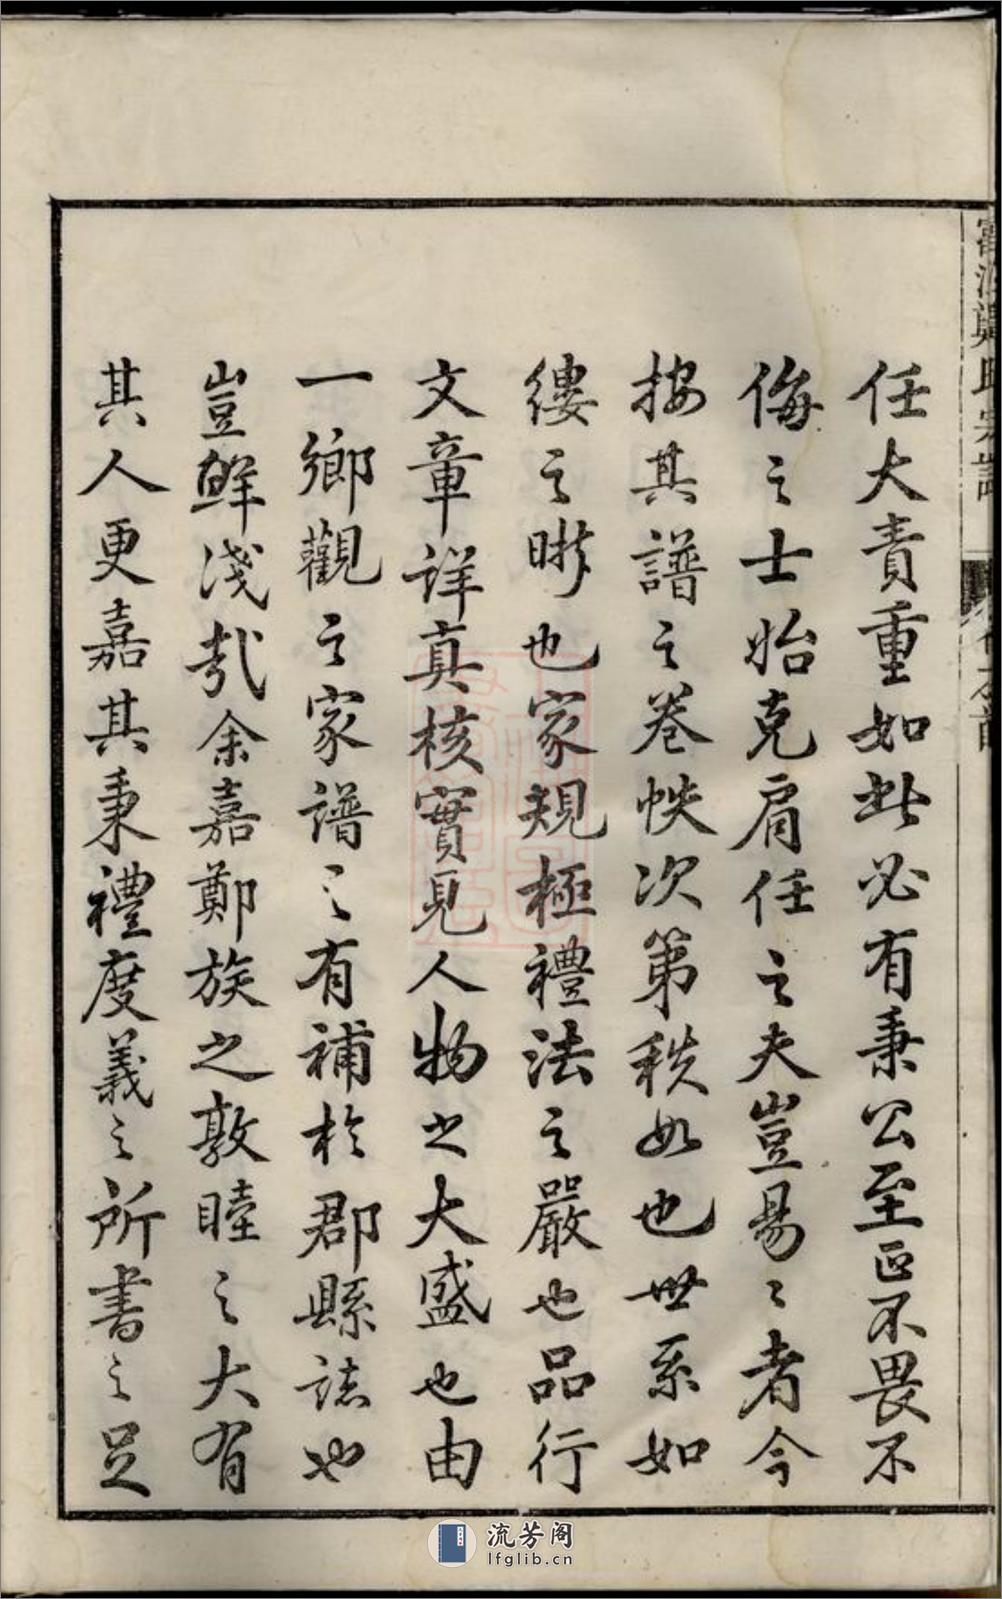 任大責重如此必有秉公至正不畏不
侮之士始克肩任之夫豈易〻者今
按其譜之卷帙次第秩如也世系如
縷之晰也家規極禮法之嚴也品行
文章详真核實見人物之大盛也由
一鄉觀之家譜之有補於郡縣誌也
豈鲜淺哉余嘉鄭族之敦睦之大有
其人更嘉其秉禮度義之所書之足
流芳阁
lfglib.cn